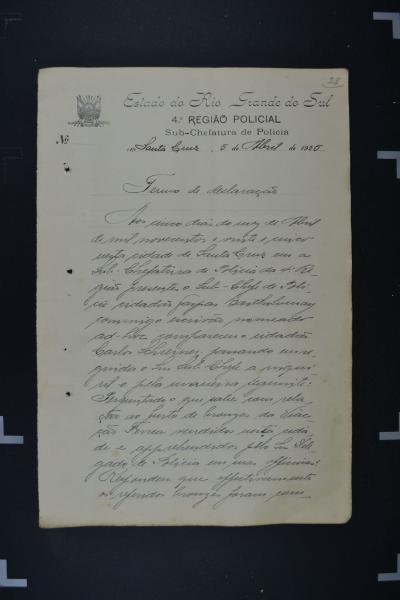 28
Estado do Rio Grande do Sul
4.ª REGIÃO POLICIAL
Sub-Chefatura de Policia
Nº
Santa Cruz, 5 de Abril de 1925.
Termo de declaração
Aos cinco dias do mez de Abril
de mil novecentos e vinte e cinco
nesta cidade de Santa Cruz em a
Sub-Chefatura de Policia da 4ª Re-
gião presentes o Sub-Chefe de Poli-
cia cidadão Gaspar Bartholomay
commigo escrivão nomeado
ad-hoc compareceu o cidadão
Carlos Schreiner, passando em se-
guida o Snr Sub-Chefe a inqui-
ril-o pela maneira seguinte:
Perguntado o que sabe com rela-
ção ao furto de bronzes da Viação
Ferrea vendidos nesta cida-
de e apprehendidos pelo Snr Dele-
gado de Policia em suas officinas?
Respondeu que effectivamente
os referidos bronzes foram com-